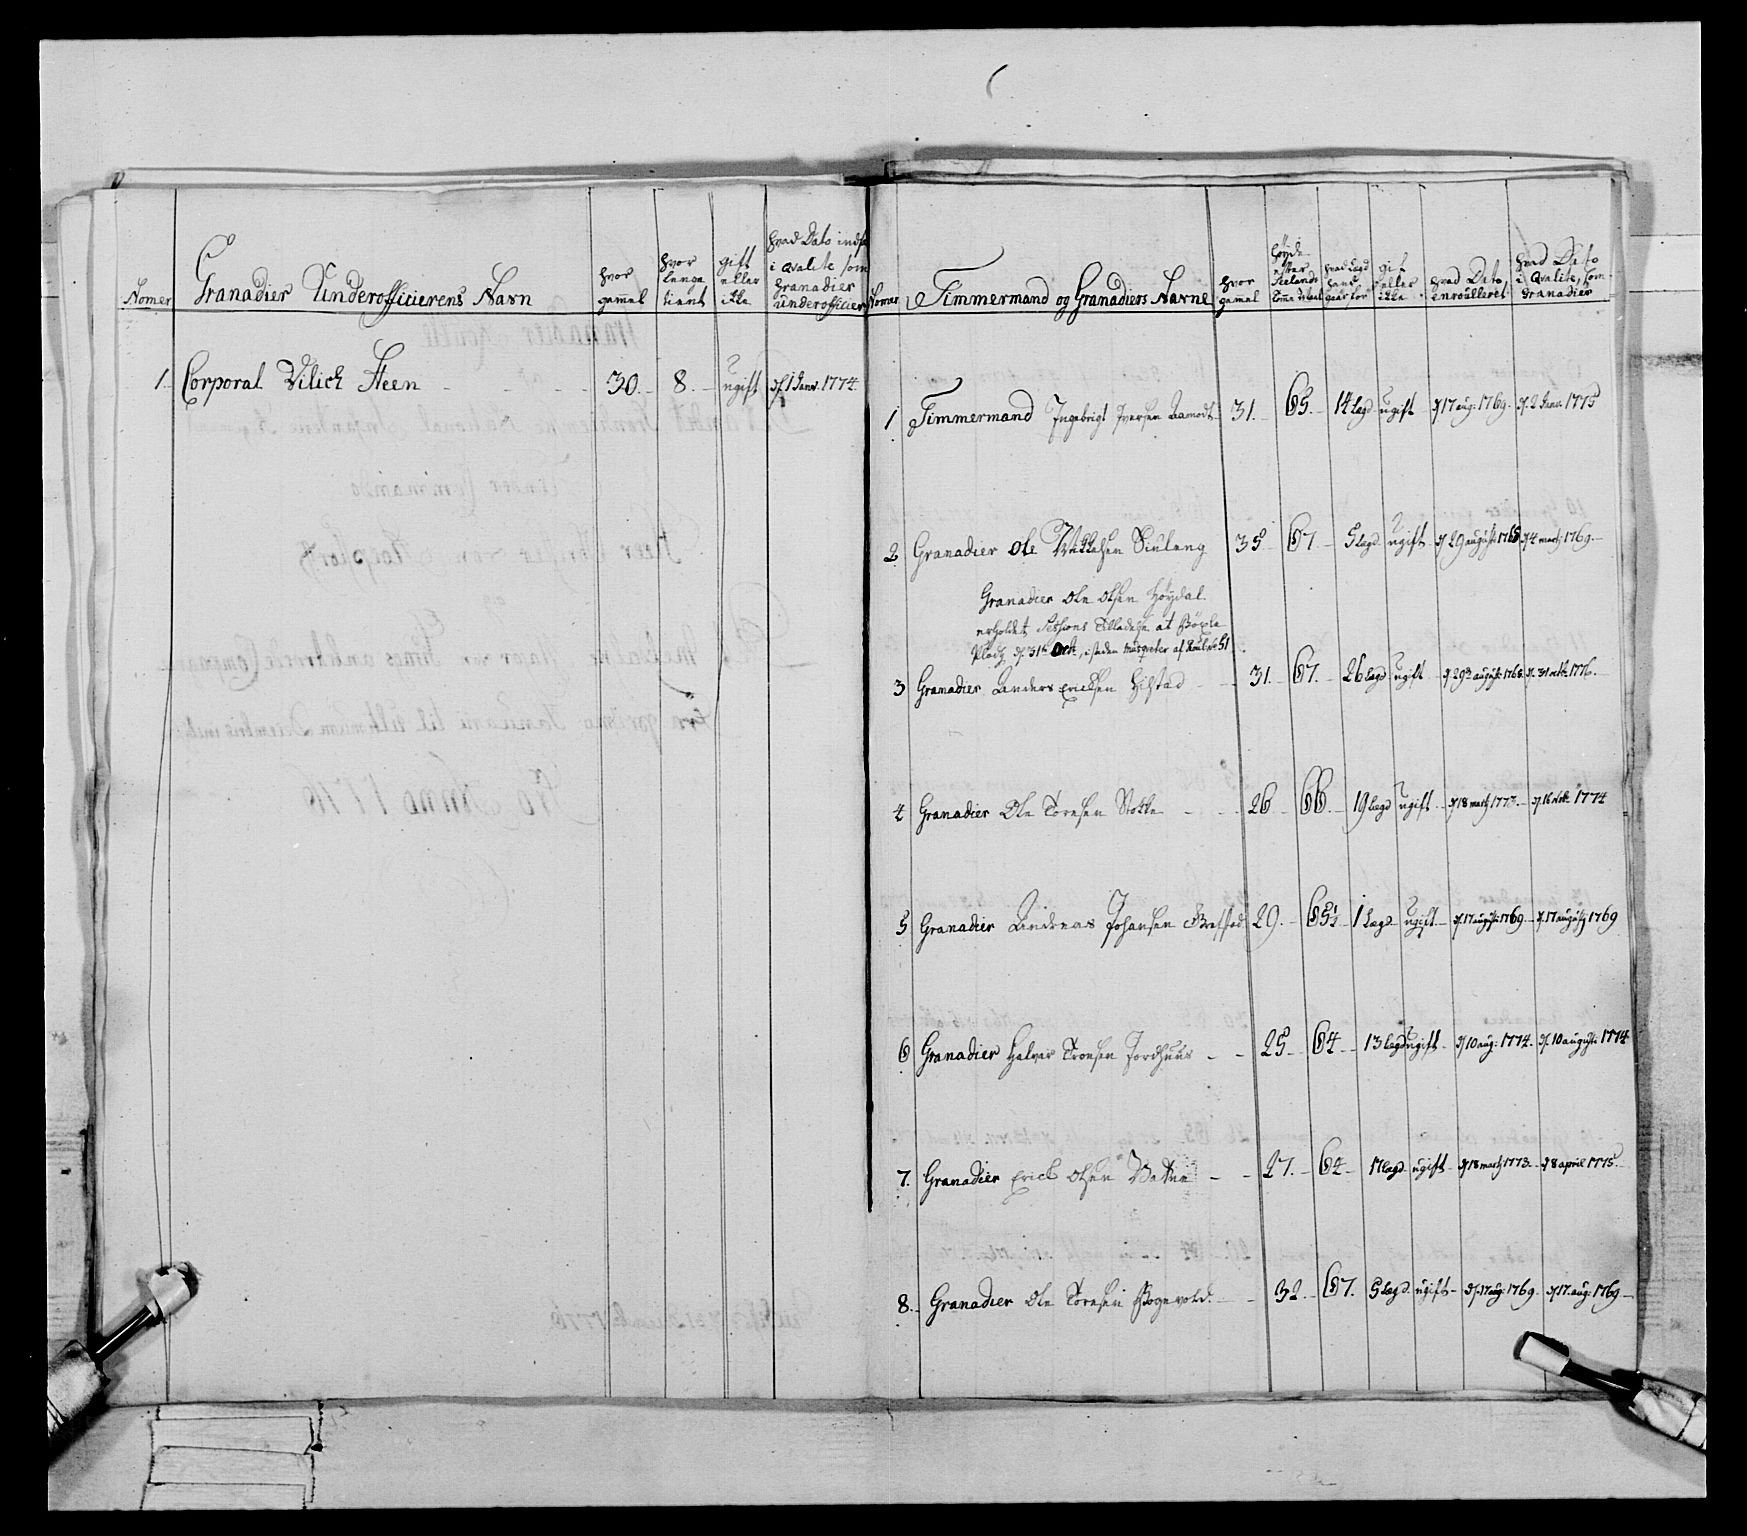 Nomer Granadier Underofficierens Navn hvor gamel hvor lenge tient gift eller ikke hvad Dato indsat i Qvalite som Granadier Underofficier
1. Corporal Vilich Steen 30. 8. ugift d. 1 Janv. 1774
Nomer Timmermand og Granadiers Navne hvor gamel Høyde efter Seelands Tomme Maal hvad Lægd hand gaar for gift eller ikke hvad Dato enroulleret hvad Dato i Qvalite som Granadier
1 Timmermand Ingebrigt Iversen Aamodt 31. 65. 14 lægd ugift d. 17 aug. 1769. d. 2 Janv. 1775
2 Granadier Ole 35 67. 5 lægd ugift d. 29 august 1768 d. 4 marty 1769.
Granadier Ole Olsen Høydal
erholdet Sessions Tilladelse at
Pladz d. 31te Octb., isteden Musqveter af Roul No 51
3 Granadier Anders Ericksen Hilstad 31. 67. 26 lægd ugift d. 29de august 1768. d. 31 octb. 1776.
4 Granadier Ole Toresen Stokke 26 66. 19 lægd ugift d. 18 marty 1773. d. 16 octb. 1774
5 Granadier Andreas Johansen 29. 65½ 1 Lægd ugift d. 17 august 1769 d. 17 august 1769
6 Granadier Halvor Tronsen Jordhuus 25 64 13 lægd ugift d. 10 aug. 1774. d. 10 august 1774
7. Granadier Erick Olsen Vatne 27. 64 17 lægd ugift d. 18 marty 1773. d. 8 april 1775.
8. Granadier Ole Toresen Bogevold 32. 67. 5 lægd. ugift d. 17 aug. 1769. d. 17. aug. 1769